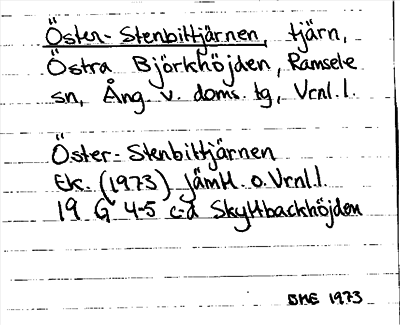 Öster-Stenbittjärnen, tjärn,
Östra Björkhöjden, Ramsele
sn, Ång. v. doms. tg, Vrnl. l.
Öster-Stenbittjärnen
Ek. (1973) Jämtl. o. Vrnl. l.
19 G 4-5 c-d Skyttbackhöjden
BME 1973